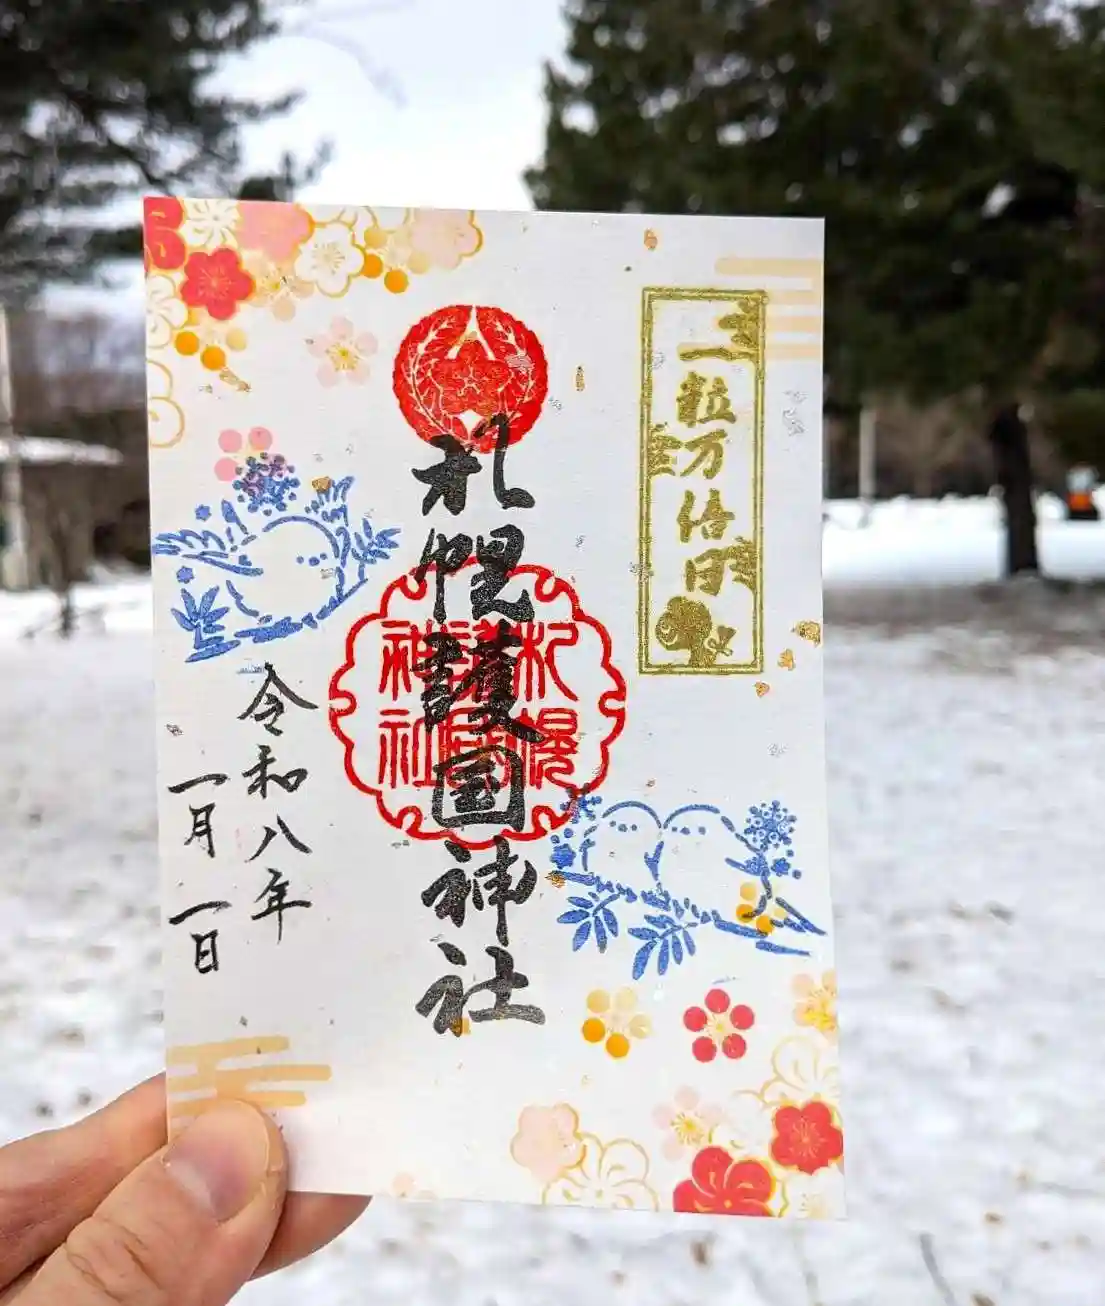 一粒万倍日
札幌護國神社
札幌
護國
神社
令和八年
一月一日